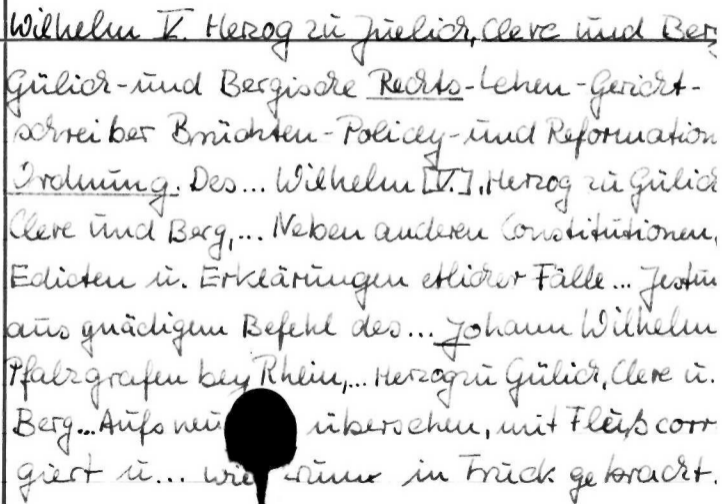 Wilhelm V. Herzog zu Juelich, Cleve und Ber
Gülich-und Bergische Rechts-Lehen-Gericht-
schreiber Brüchten-Policey-und Reformation
Ordnung. Des... Wilhelm [V.], Herzog zu Gülich
Cleve und Berg,... Neben anderen Constitutionen,
Edicten u. Erklärungen etlicher Fälle... Jestu
aus gnädigem Befehl des... Johann Wilhelm
Pfalzgrafen bey Rhein,... Herzog zu Gülich, Cleve u.
Berg...Aufs neu übersehen, mit Fleiß corr
giert u... in Truck gebracht.